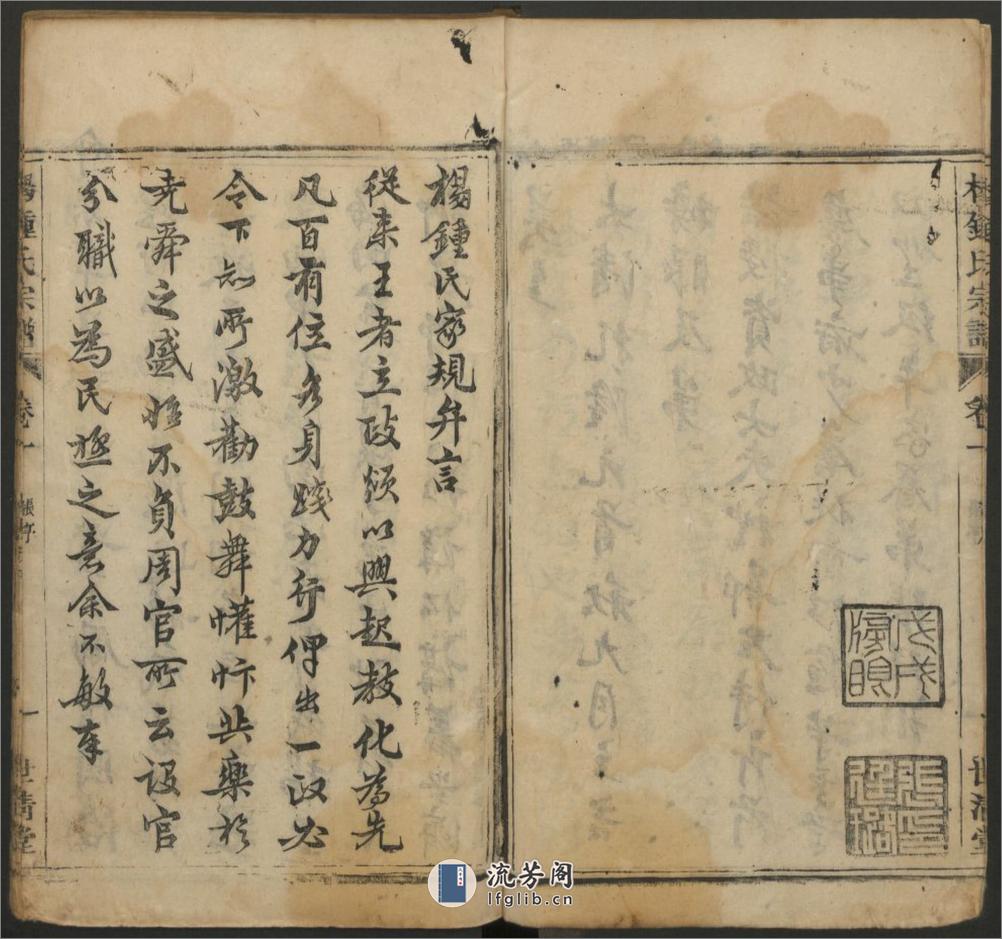 楊鍾氏宗譜
卷一
世清堂
戊戌
張
印
楊鍾民家規弁言
從来王者立政须以興起教化為先
凡百有位各身踐力行俾出一政必
令下知所激勸鼓舞懽忭共樂於
尭舜之盛始不負周官所云設官
分職以為民極之意余不敏奉
楊鍾氏宗譜
卷一
張序
一
世清堂
流芳阁
lfglib.cn